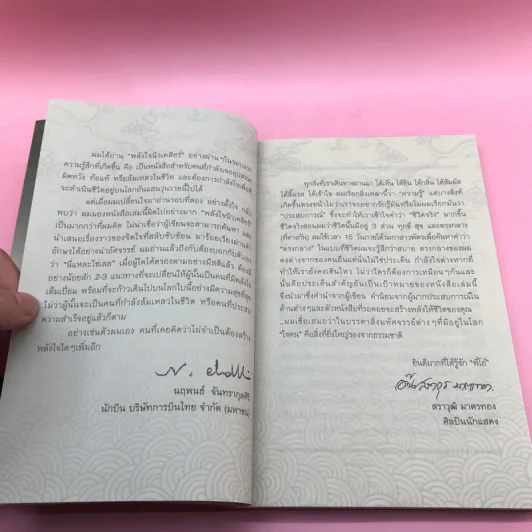 ผมได้อ่าน "พลังใจนิวเคลียร์" อย่างผ่านๆ
ความรู้สึกที่เกิดขึ้น คือ เป็นหนังสือสำหรับคนที่กำลังเจออุปสรรค
ผิดหวัง ท้อแท้ หรือล้มเหลวในชีวิต และต้องการกำลังใจเพื่อที่
จะดำเนินชีวิตอยู่บนโลกอันแสนวุ่นวายนี้ไปได้
แต่เมื่อผมเปลี่ยนใจมาอ่านรอบที่สอง อย่างตั้งใจ
พบว่า ผมมองหนังสือเล่มนี้ผิดไปอย่างมาก "พลังใจนิวเคลียร์"
เป็นมากกว่าที่ผมคิด ไม่น่าเชื่อว่าผู้เขียนจะสามารถค้นหา
นำเสนอเรื่องราวของชีวิตใจที่สลับซับซ้อน มาร้อยเรียงผ่านตัว
อักษรได้อย่างน่าอัศจรรย์ ผมอ่านแล้วถึงกับต้องบอกกับตัวเอง
ว่า "นี่แหละใช่เลย" เมื่อผู้ใดได้ตรองตามอย่างมีสติแล้ว
อย่างน้อยสัก 2-3 แนวทางที่จะเปลี่ยนให้ผู้นั้นเป็นคนที่มีพลังใจ
เต็มเปี่ยม พร้อมที่จะก้าวเดินไปบนโลกใบนี้อย่างมีความสุขที่สุด
ไม่ว่าผู้นั้นจะเป็นคนที่กำลังล้มเหลวในชีวิต หรือคนที่ประสบ
ความสำเร็จอยู่แล้วก็ตาม
อย่างเช่นตัวผมเอง คนที่เคยคิดว่าไม่จำเป็นต้องสร้าง
พลังใจใดๆเพิ่มอีก
นฤพนธ์ จันทรากุลศิริ
นักบิน บริษัทการบินไทย จำกัด (มหาชน)
ทุกสิ่งที่เราเดินทางผ่านมา ได้เห็น ได้ยิน ได้กลิ่น ได้สัมผัส
ได้ลิ้มรส ได้เข้าใจ ผมเรียกสิ่งเหล่านี้ว่า "ความรู้" แต่บางสิ่งที่
เกิดขึ้นตรงหน้าไม่ว่าเราจะอยากรับรู้มันหรือไม่ผมเรียกมันว่า
"ประสบการณ์" ซึ่งจะทำให้เราเข้าใจคำว่า "ชีวิตจริง" มากขึ้น
ชีวิตจริงสอนผมว่าชีวิตนั้นมีอยู่ 3 ส่วน ทุกข์ สุข และตรงกลาง
(ที่ต่างกัน) ผมใช้เวลา 15 วันภายใต้ร่มกาสาวพัสตร์เพื่อค้นหาคำว่า
"ตรงกลาง" ในแบบที่ชีวิตผมจะรู้สึกว่าสบาย ตรงกลางของผม
คงต่างจากของคนอื่นแต่นั่นไม่ใช่ประเด็น กำลังใจต่างหากที่
ทำให้เรายังคงเดินไหว ไม่ว่าใครก็ต้องการเหมือนๆกันและ
นั่นคือประเด็นสำคัญอันเป็นเป้าหมายของหนังสือเล่มนี้
จึงนำมาซึ่งคำนำจากผู้เขียน คำนิยมจากผู้มากประสบการณ์ใน
ด้านต่างๆและตัวหนังสือที่รอคอยจะสร้างพลังให้ชีวิตของคุณ
...ผมเชื่อเสมอว่าในบรรดาสิ่งมหัศจรรย์ต่างๆที่มีอยู่ในโลก
"ใจคน" คือสิ่งที่ยิ่งใหญ่รองจากธรรมชาติ
ยินดีมากที่ได้รู้จัก "พี่โอ๋"
สราวุฒิ มาตรทอง
ศิลปินนักแสดง